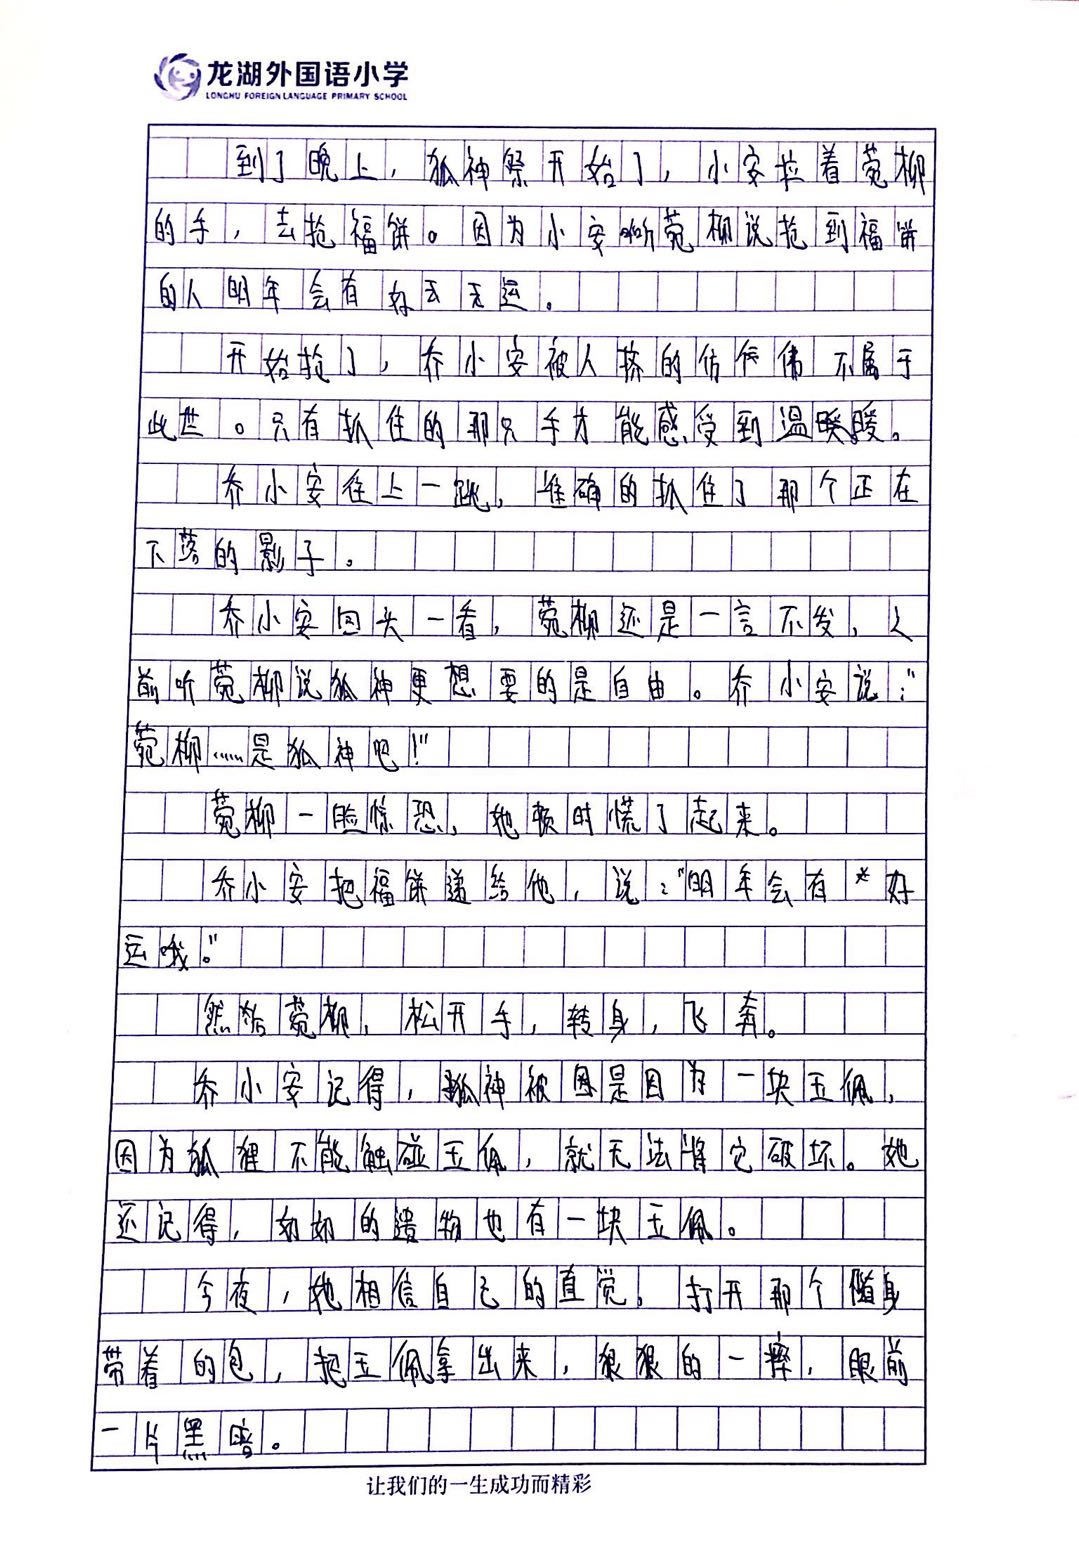 龙湖外国语小学
LONGHU FOREIGN LANGUAGE PRIMARY SCHOOL
到了晚上，狐神祭开始了，小安拉着菀柳
的手，去抢福饼。因为小安听菀柳说抢到福饼
的人明年会有好云无运。
开始抢了，乔小安被人挤的仿佛不属于
此世。只有抓住的那只手才能感受到温暖。
乔小安往上一跳，准确的抓住了那个正在
下落的影子。
乔小安回头一看，菀柳还是一言不发，之
前听菀柳说狐神更想要的是自由。乔小安说：“
菀柳……是狐神吧！”
菀柳一脸惊恐，她顿时慌了起来。
乔小安把福饼递给他，说：“明年会有好
运哦。”
然后菀柳，松开手，转身，飞奔。
乔小安记得，狐神被困是因为一块玉佩，
因为狐狸不能触碰玉佩，就无法将它破坏。她
还记得，奶奶的遗物也有一块玉佩。
今夜，她相信自己的直觉。打开那个随身
带着的包，把玉佩拿出来，狠狠的一摔，眼前
一片黑暗。
让我们的一生成功而精彩